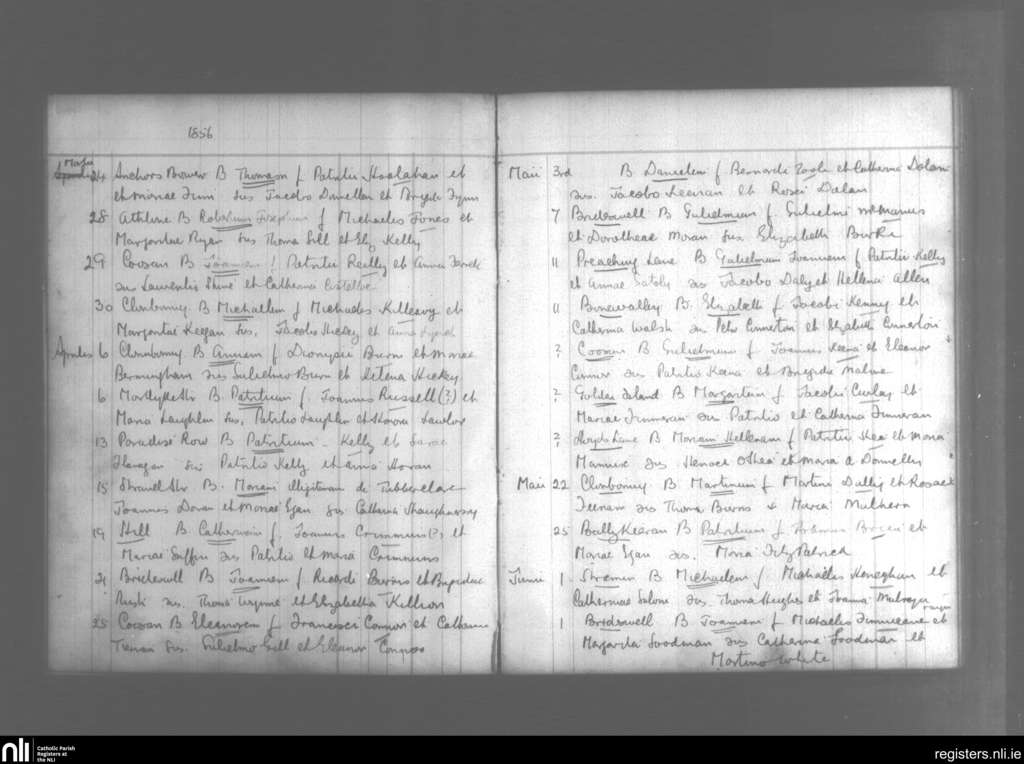 1856
Martii
24 Anchors Bower B Thomam f Patritii Hoolahan et
et Mariae Finn sus Jacobo Donellan et Brigida Flynn
28 Athlone B Robertum Josephum f Michaelis Jones et
Margaritae Ryan sus Thoma Gill et Eliz Kelly
29 Coosan B Joannem f Patritii Reilly et Annae
sus Laurentio Shine et Catherina Costelloe
30 Clonbonny B Michaelem f Michaelis Killeavy et
Margaritae Keegan sus. Jacobo Hickey et Anna
Aprilis 6 Clonbonny B Annam f Dionysii Burn et Mariae
Bermingham sus Gulielmo Burn et Helena Hickey
6 B Patritium f Joannis Russell (?) et
Maria Laughlin sus, Patritio Laughlin et Honora Lawlor
13 Paradise Row B Patritium - Kelly et Sarae
Flanagan sus Patritio Kelly et Anna Horan
15 B. Mariam illegitimam de Tubberclare
Joannis Doran et Mariae Egan sus Catherina Shaughnessy
19 Hill B Catherinam f. Joannis Crimmins (?) et
Mariae Giffin sus Patritio et Maria Crimmins
21 Bridewell B Joannem f Ricardi Burns et Brigidae
Rusk sus. Thoma et Elizabetha Killion
25 Coosan B Eleanorem f Francisci Connor et Catherine
Tiernan sus. Gulielmo Gill et Eleanor Connor
Maii 3rd B Danielem f Bernardi Toole et Catherine Dolan
sus. Jacobo Keenan et Rosa Dolan
7 Bridewell B Gulielmum f. Gulielmi McManus
et Dorotheae Moran sus Elizabeth Burke
11 Preaching Lane B Gulielmum Joannem f Patritii Kelly
et Annae sus Jacobo Daly et Hellena Allen
11 Bonevalley B. Elizabeth f Jacobi Kenny et
Catherina Walsh sus Petro Cunerton et Elizabeth
? Coosan B Gulielmum f. Joannis Keena et Eleanor
Connor sus Patritio Keena et Brigida Malone
? Golden Island B Margaritam f Jacobi Curley et
Mariae Finneran sus Patritio et Catherina Finneran
? Lloyds Lane B Mariam Hellenam f Patritii Shea et Maria
sus Honora OShea et Maria A Donnelly
Maii 22 Clonbonny B Martinum f Martini Daly et Rosae
sus Thoma Burns & Maria Mulhern
25 Bally Keeran B Patritium f et
Mariae Egan sus. Maria FitzPatrick
Junii 1 B Michaelem f Michaelis Heneghan et
Catherinae sus. Thoma Hughes et Joanna
1 Bridewell B Joannem f Michaelis et
Margarita Goodman sus Catherina Goodman et
Martino White
nli Catholic Parish
Registers at
the NLI
registers.nli.ie